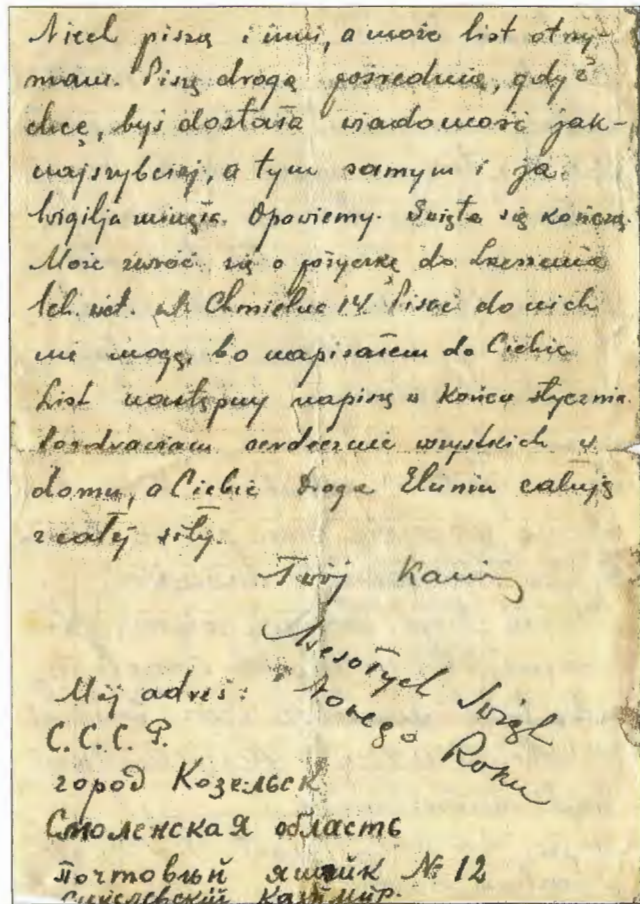 Niech piszą i inni, a może list otrzy-
mam. Piszę drogą pośrednią, gdyż
chcę, byś dostała wiadomość jak-
najszybciej, a tym samym i ja.
Wigilja minęła. Opowiemy. Święta się kończą.
Może zwróć się o pożyczkę do Zrzeszenia
Tch. wet. ul. Chmielna 14. Pisać do nich
nie mogę, bo napisałem do Ciebie
List następny napiszę w końcu stycznia.
Pozdrawiam serdecznie wszystkich w
domu, a Ciebie Droga Eluniu całuję
z całej siły.
Twój Kazio
Wesołych Świąt
Nowego Roku
Mój adres:
С.С.С.Р.
город Козельск
Смоленская область
Почтовый ящик № 12
Казимир.